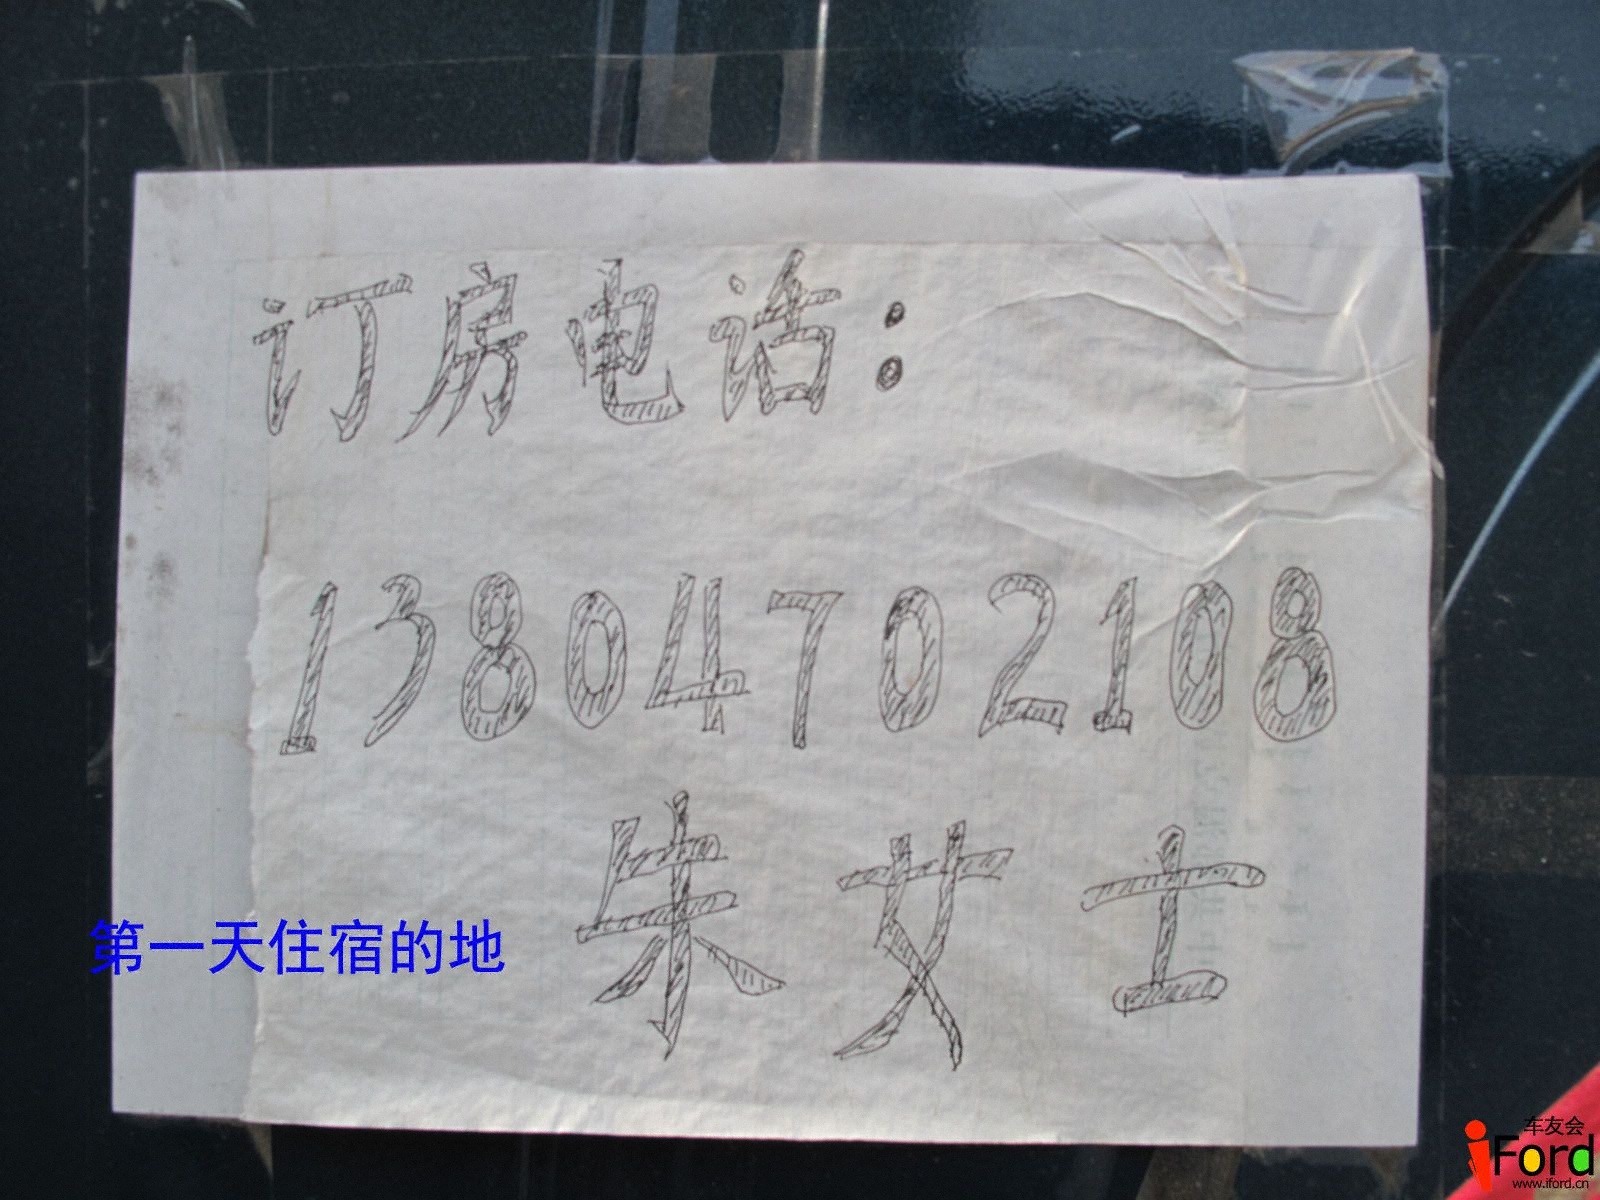 订房电话：
13804702108
朱女士
第一天住宿的地
车友会
iFord
www.iford.cn